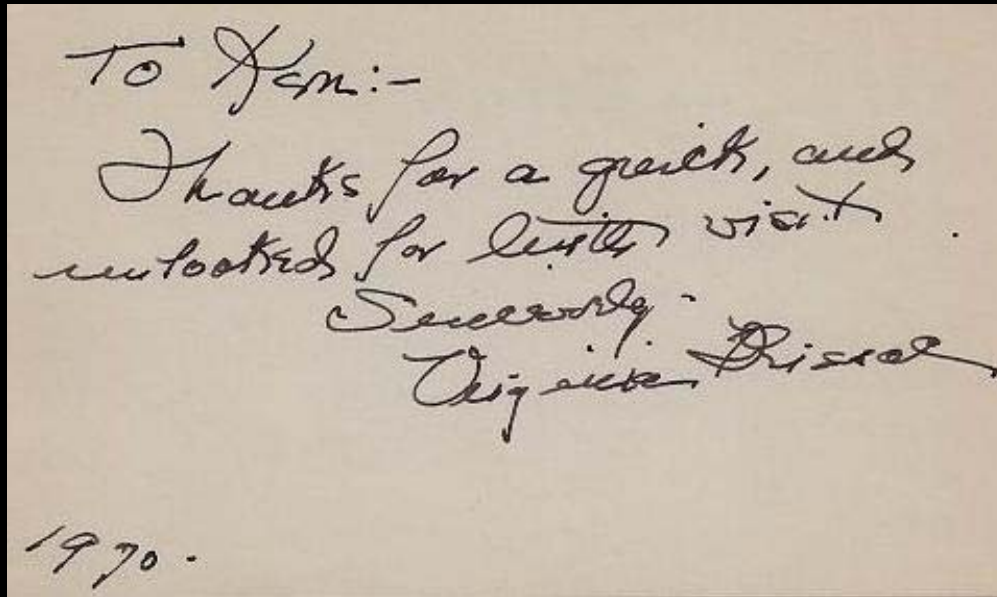 To Ken:-
Thanks for a quick, and
unlooked for little visit.
Sincerely -
Virginia Brissac
1970.